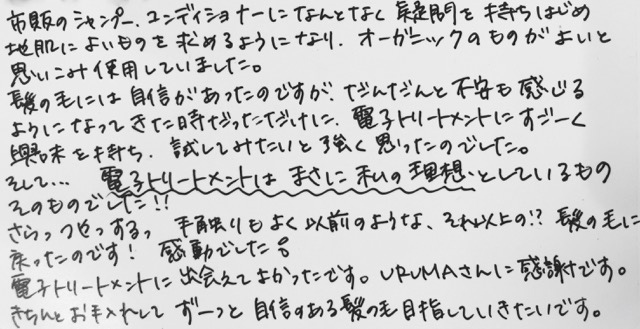 市販のシャンプー、コンディショナーになんとなく疑問を持ちはじめ
地肌によいものを求めるようになり、オーガニックのものがよいと
思いこみ使用していました。
髪の毛には自信があったのですが、だんだんと不安も感じる
ようになってきた時だっただけに、電子トリートメントにすごーく
興味を持ち、試してみたいと強く思ったのでした。
そして… 電子トリートメントはまさに私の理想としているもの
そのものでした!!
さらっつやっするっ 手触りもよく以前のような、それ以上の!? 髪の毛に
戻ったのです! 感動でした
電子トリートメントに出会えてよかったです。URUMAさんに感謝です。
きちんとお手入れして ずーっと自信のある髪の毛目指していきたいです。